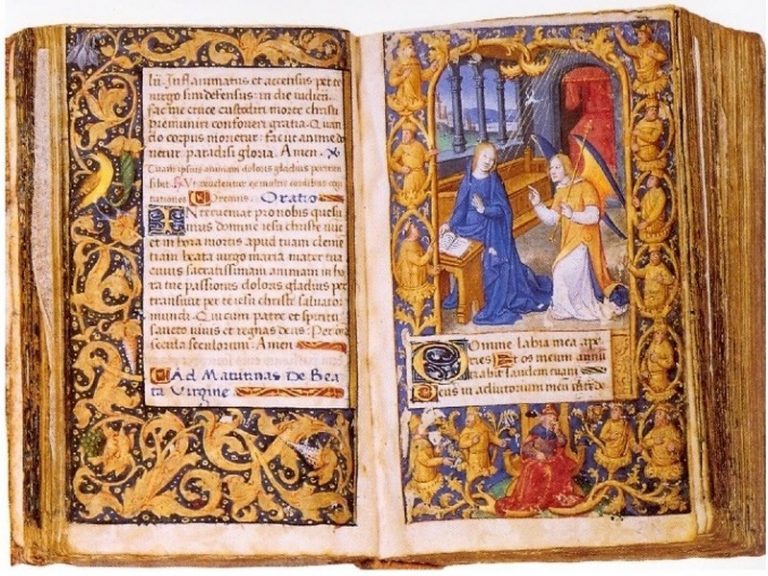 lii. Inflammatus et accensus per te
virgo sim defensus: in die iudicii.
fac me cruce custodiri morte christi
premuniri confoveri gratia. Quan
do corpus morietur: fac ut anime do
netur paradisi gloria. Amen.
Tuam ipsius animam doloris gladius pertran
sibit. ex multis cordibus cogi
tationes Oremus. Oratio
Interveniat pro nobis quesu
mus domine iesu christe nūc
et in hora mortis apud tuam cleme
tiam beata virgo maria mater tua
cuius sacratissimam animam in ho
ra tue passionis doloris gladius per
transivit per te iesu christe salvator
mundi. Qui cum patre et spiritu
sancto vivis et regnas deus: Per om
secula seculorum. Amen
Ad Matutinas De Bea
ta Virgine
Domine labia mea ape
ries Et os meum annū
tiabit laudem tuam
Deus in adiutorium meū inte de